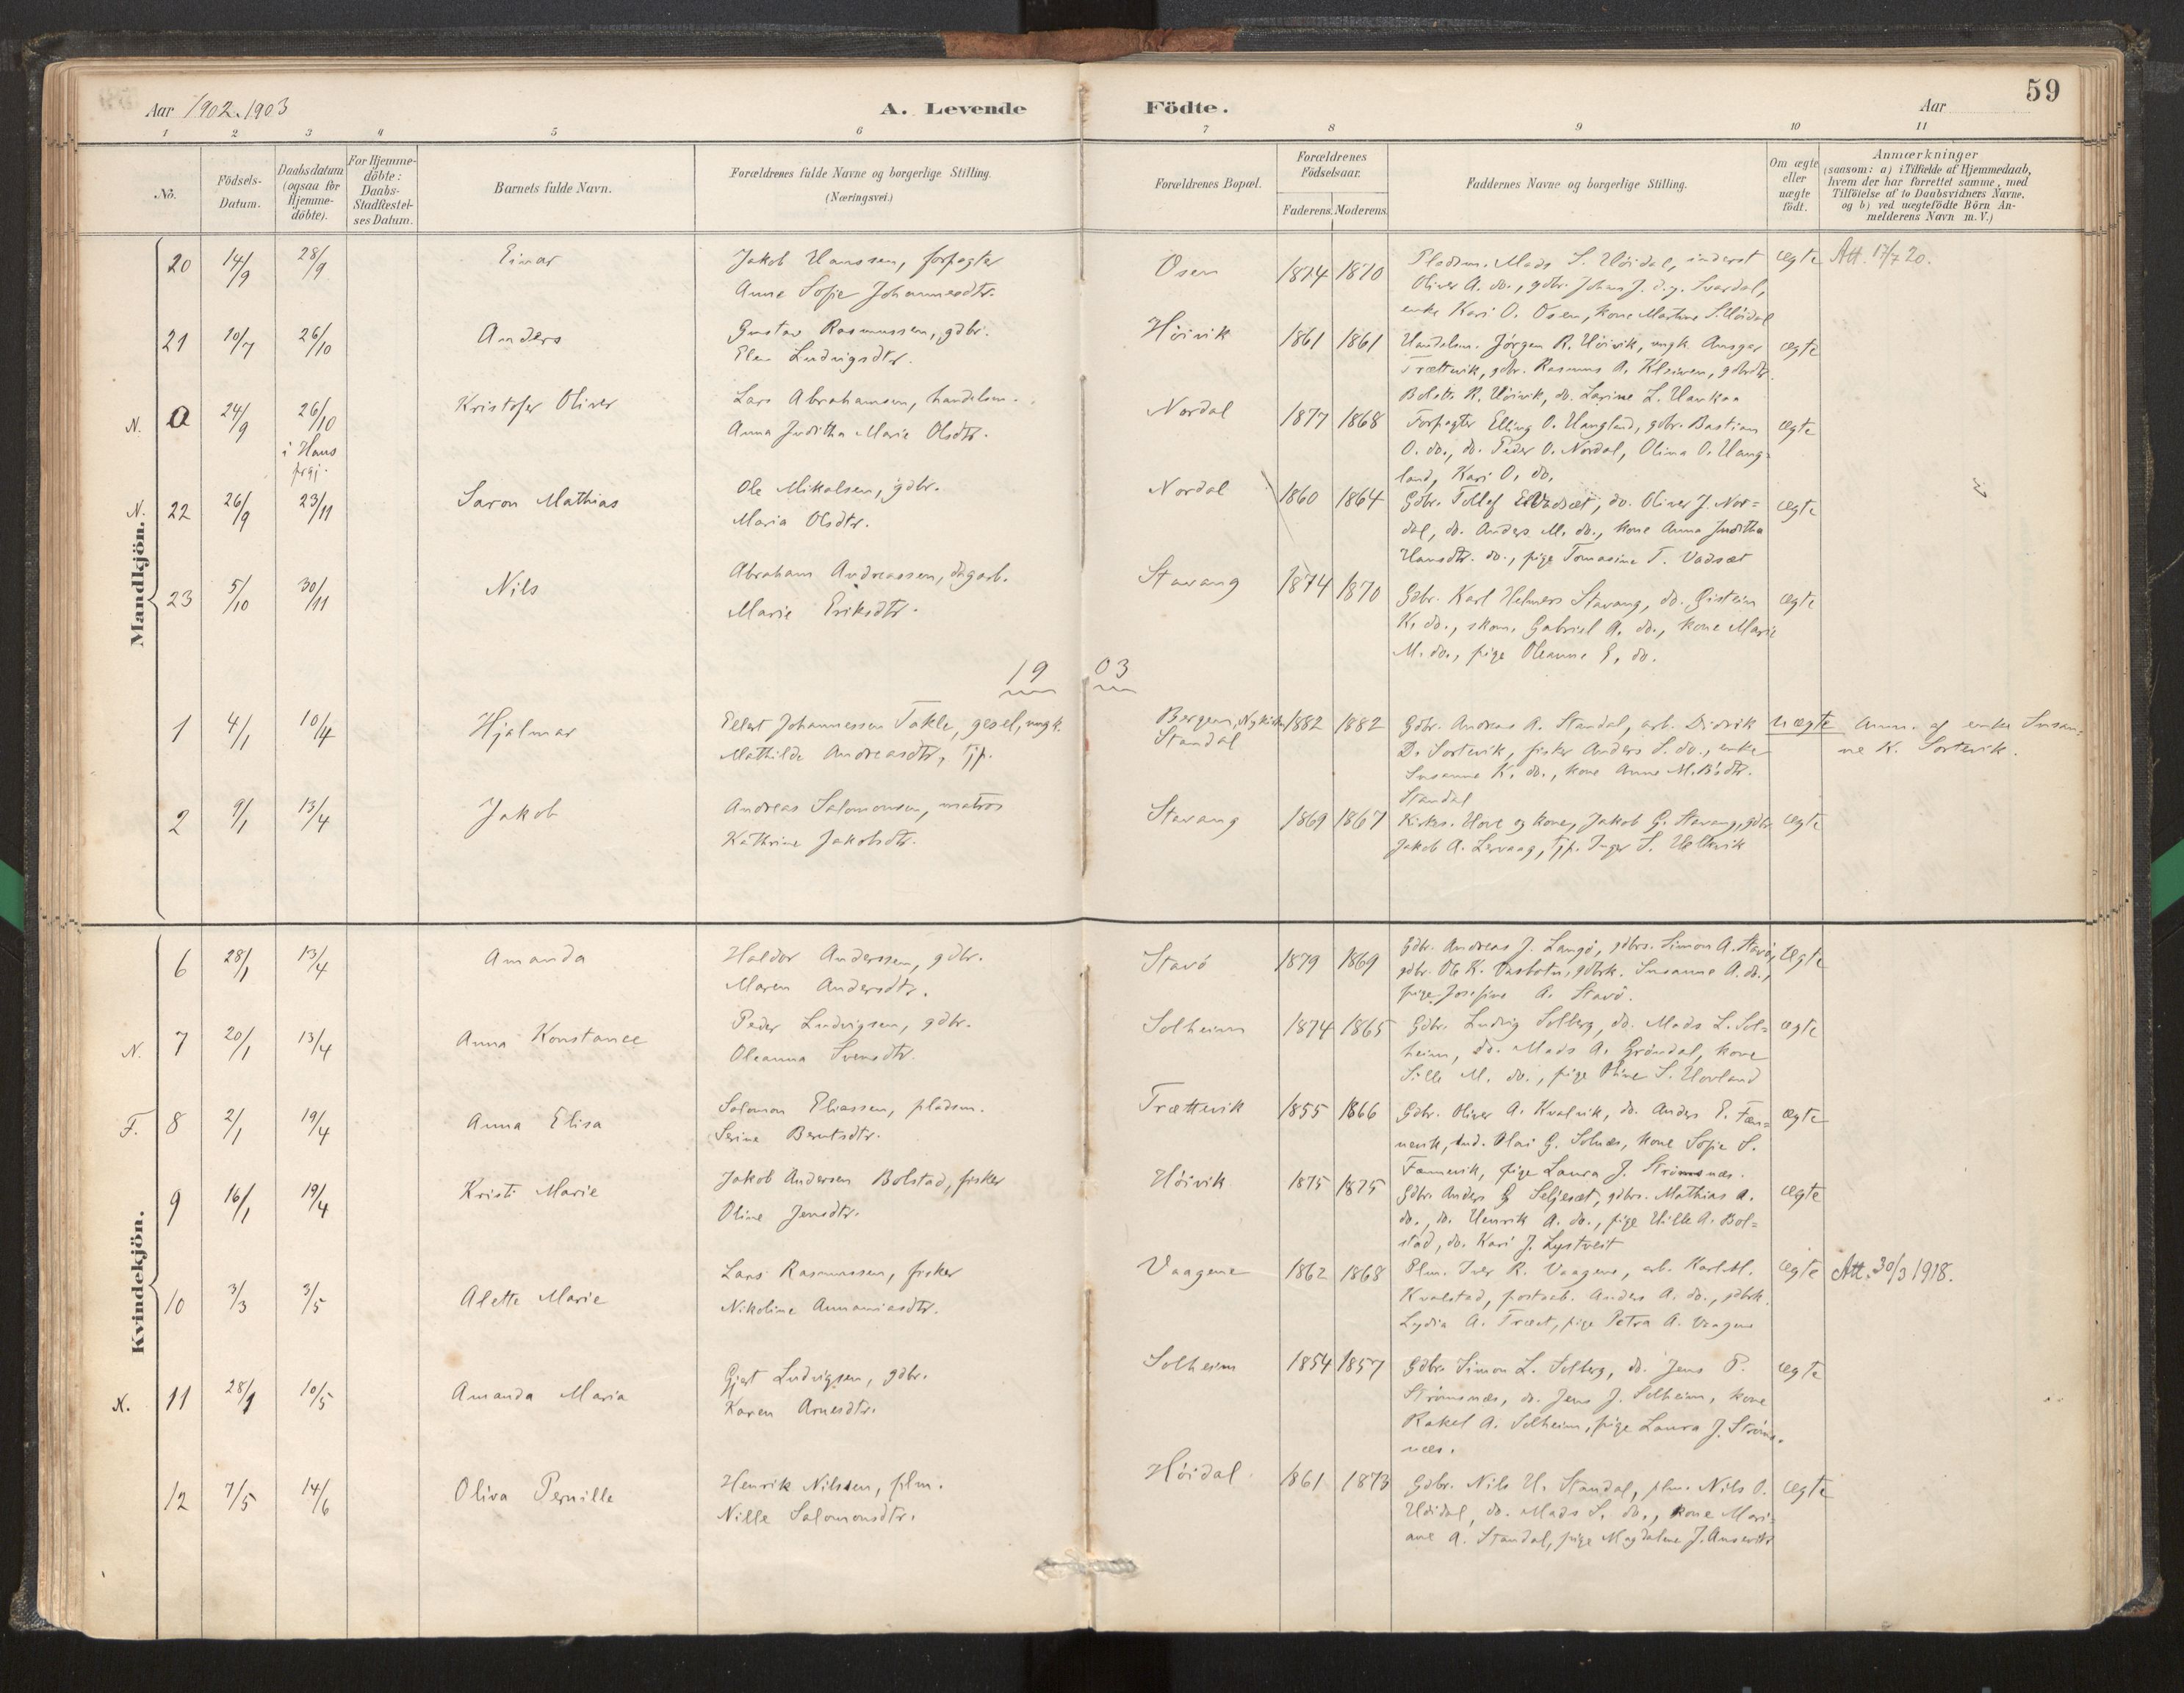 59
Aar 1902. 1903
A. Levende
Födte.
Aar
1 2 3 4 5 6 7 8 9 10 11
No.
Födsels-
Datum.
Daabsdatum
(ogsaa for
Hjemme-
döbte).
For Hjemme-
döbte:
Daabs-
Stadfæstel-
ses Datum.
Barnets fulde Navn.
Forældrenes fulde Navne og borgerlige Stilling.
(Næringsvei.)
Forældrenes Bopæl.
Forældrenes
Födselsaar.
Faderens. Moderens.
Faddernes Navne og borgerlige Stilling.
Om ægte
eller
uægte
födt.
Anmærkninger
(saasom: a) i Tilfælde af Hjemmedaab,
hvem der har forrettet samme, med
Tilföielse af to Daabsvidners Navne.
og b) ved uægtefödte Börn An-
melderens Navn m. V.)
Mandkjön.
20 14/9 28/9 Einar
Jakob Hanssen, forpagter
Anne Sofie Johannesdtr.
Osen 1874 1870
Pladsm. Mads S. Höidal, inderst
Oliver A. do., gdbr. Johans J. d.y. Svardal,
enke Kari O. Osen, kone Martine S. Höidal
ægte Att. 17/7 20.
21 10/7 26/10 Anders
Gustav Rasmussen, gdbr.
Elen Ludvigsdtr.
Höivik 1861 1861
Handelsm. Jörgen R. Höivik, ungk. Ansgar
Trættevik, gdbr. Rasmus A. Kleiven, gdbrdtr.
R. Höivik, do. Larine L.
ægte
N. a 24/9 26/10
i Haus
prgj.
Kristofer Oliver
Lars Abrahamsen, handelsm.
Anna Juditha Marie Olsdtr.
Nordal 1877 1868
Forpagter Elling O. Haugland, gdbr. Bastian
O. do., do. Peder O. Nordal, Olina O. Haug=
land, Kari O. do.
ægte
N. 22 26/9 23/11 Saron Mathias
Ole Mikalsen, gdbr.
Maria Olsdtr.
Nordal 1860 1864
Gdbr. Tollef Vadsæt, do. Oliver J. Nor=
dal, do. Anders M. do., kone Anna Juditha
Hansdtr. do., pige Tomasine T. Vadsæt
ægte
23 5/10 30/11 Nils
Abraham Andreassen, dagarb.
Marie Eriksdtr.
Stavang 1874 1870
Gdbr. Karl Helmers Stavang, do. Eistein
K. do., skom. Gabriel A. do., kone Marie
M. do., pige Oleanna E. do.
ægte
1903
1 4/1 10/4 Hjalmar
Eilert Johannessen Takle, gesel, ungk.
Mathilde Andreasdtr, tjp.
Bergen, Nykirken
Standal
1882 1882
Gdbr. Andreas A. Standal, arb. Didrik
D. Sortevik, fisker Anders S. do., enke
Susanne K. do., kone Anne M. dtr.
Standal
uægte
Anm. af enke Susan=
ne K. Sortevik.
2 9/1 13/4 Jakob
Andreas Salomonsen, matros
Kathrine Jakobsdtr.
Stavang 1869 1867
Kirkes. Hove og kone, Jakob G. Stavang, gdbr.
Jakob A. Lervaag, tjp. Inger S.
ægte
Kvindekjön.
6 28/1 13/4 Amanda
Haldor Anderssen, gdbr.
Maren Andersdtr.
Stavö 1879 1869
Gdbr. Andreas J. Langö, gdbrs. Simon A. Stavö,
gdbr. Ole K. Vasbotn, gdbrk. Susanne A. do.,
pige Josefine A. Stavö.
ægte
N. 7 20/1 13/4 Anna Konstanse
Peder Ludvigsen, gdbr.
Oleanna Svensdtr.
Solheim 1874 1865
Gdbr. Ludvig Solberg, do. Mads L. Sol=
heim, do. Mads A. Gröndal, kone
Sille M. do., pige Oline S. Hovland
ægte
F. 8 2/1 19/4 Anna Elisa
Salomon Eliassen, pladsm.
Serine Berntsdtr.
Trættevik 1855 1866
Gdbr. Oliver A. Kvalvik, do. Anders E. Fan=
nevik, ind. Olai G. Solnæs, kone Sofie S.
Fannevik, pige Laura J. Strömsnæs.
ægte
9 16/1 19/4 Kristi Marie
Jakob Andersen Bolstad, fisker
Oline Jensdtr.
Höivik 1875 1875
Gdbr. Anders G. Seljesæt, gdbrs. Mathias A.
do., do. Henrik A. do., pige Hille A. Bol=
stad, do. Kari J. Lystveit
ægte
10 3/3 3/5 Alette Marie
Lars Rasmussen, fisker
Nikoline Annaniasdtr.
Vaagene 1862 1868
Plm. Iver R. Vaagene, arb. Karl M.
Kvalstad, postaab. Anders A. do., gdbrk.
Lydia A. Træet, pige Petra A. Vaagene
ægte Att. 30/3 1918.
N. 11 28/1 10/5 Amanda Maria
Gjert Ludvigsen, gdbr.
Karen Arnesdtr.
Solheim 1854 1857
Gdbr. Simon L. Solberg, do. Jens P.
Strömsnæs, do. Jens J. Solheim, kone
Rakel A. Solheim, pige Laura J. Ströms=
næs.
ægte
12 7/5 14/6 Oliva Pernille
Henrik Nilssen, plm.
Nille Salomonsdtr.
Höidal 1861 1873
Gdbr. Nils H. Standal, plm. Nils O.
Höidal, do. Mads S. do., kone Mari=
ane A. Standal, pige Magdalene J. Ausevik
ægte